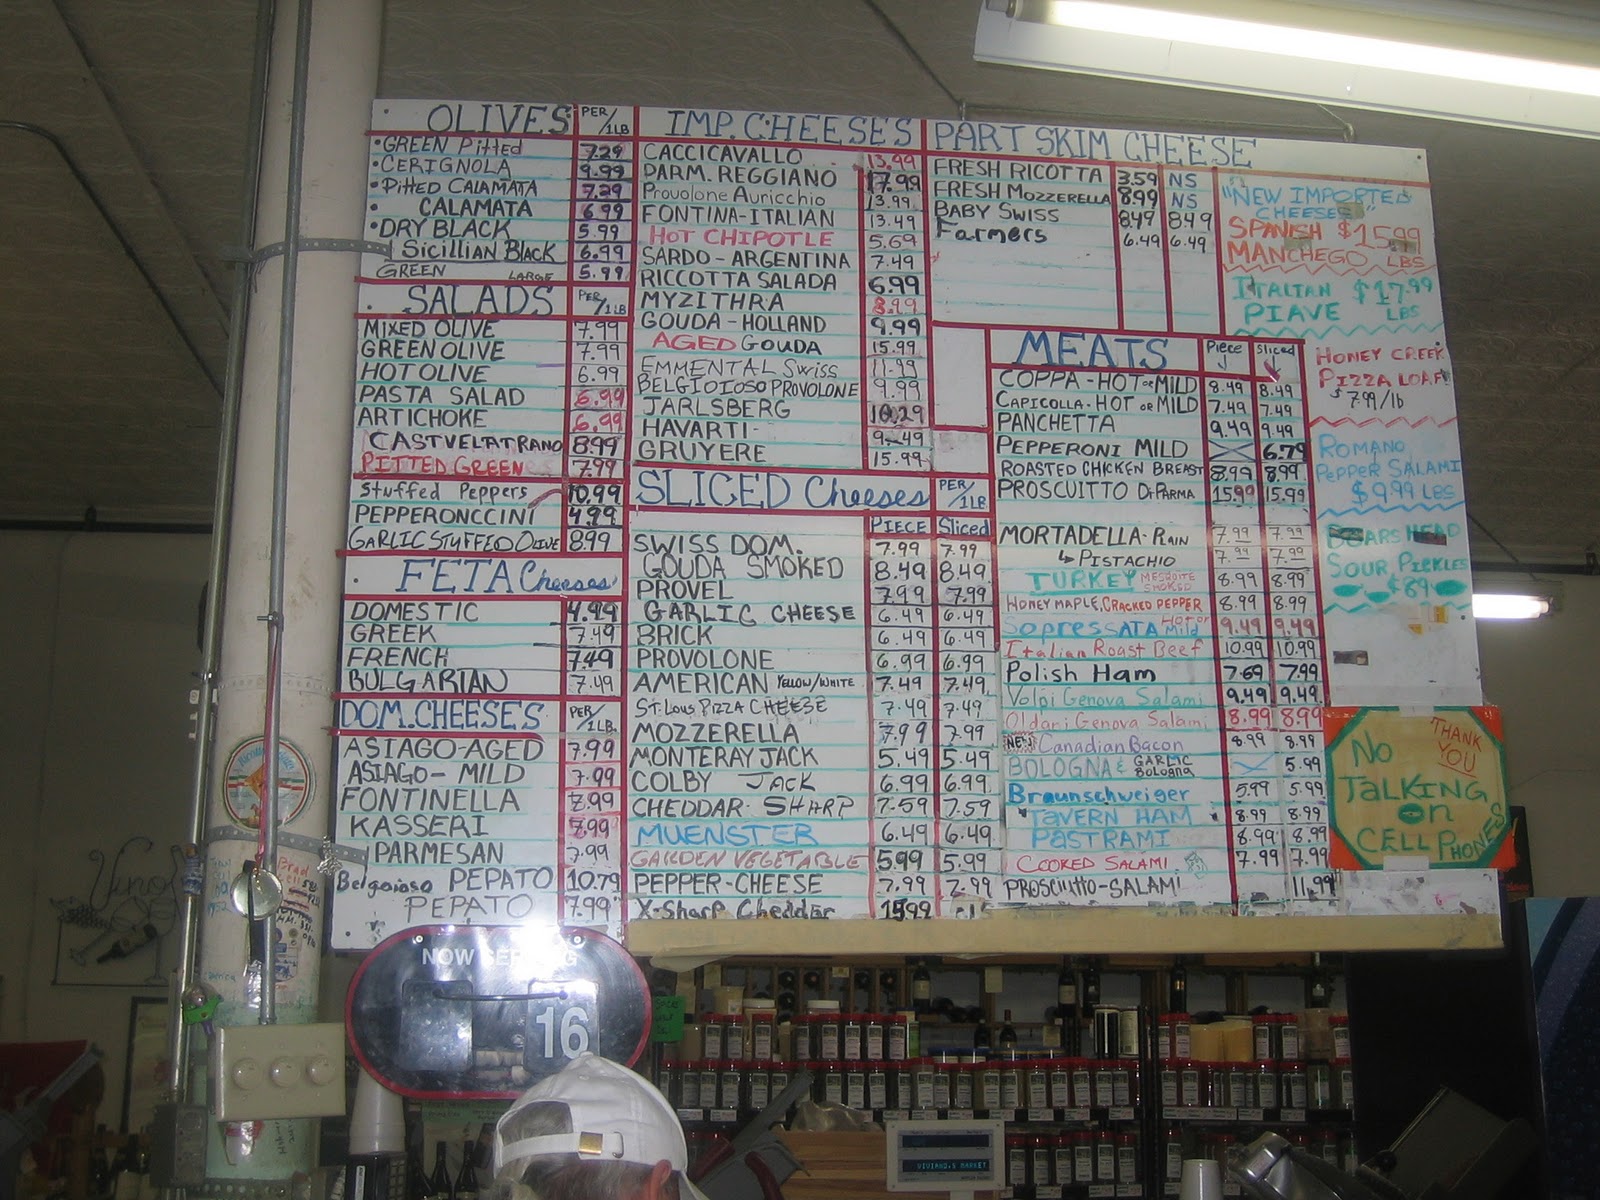 OLIVES PER/1LB
GREEN Pitted 7.29
CERIGNOLA 9.99
Pitted CALAMATA 7.29
CALAMATA 6.99
DRY BLACK 5.99
Sicillian Black 6.99
GREEN LARGE 5.99
SALADS PER/1LB
MIXED OLIVE 7.99
GREEN OLIVE 7.99
HOT OLIVE 6.99
PASTA SALAD 6.99
ARTICHOKE 6.99
CASTVELATRANO 8.99
PITTED GREEN 7.99
Stuffed Peppers 10.99
PEPPERONCCINI 4.99
GARLIC STUFFED OLIVE 8.99
FETA Cheeses
DOMESTIC 4.99
GREEK 7.49
FRENCH 7.49
BULGARIAN 7.49
DOM. CHEESE'S PER/1LB.
ASIAGO-AGED 7.99
ASIAGO- MILD 7.99
FONTINELLA 7.99
KASSERI 7.99
PARMESAN 7.99
Belgoioso PEPATO 10.79
PEPATO 7.99
IMP. CHEESE'S
CACCICAVALLO 13.99
PARM. REGGIANO 17.99
Provolone Auricchio 13.99
FONTINA-ITALIAN 13.49
HOT CHIPOTLE 5.69
SARDO - ARGENTINA 7.49
RICCOTTA SALADA 6.99
MYZITHRA 8.99
GOUDA - HOLLAND 9.99
AGED GOUDA 15.99
EMMENTAL Swiss 11.99
BELGIOIOSO PROVOLONE 9.99
JARLSBERG 10.29
HAVARTI- 9.49
GRUYERE 15.99
SLICED Cheeses PER/1LB
PIECE Sliced
SWISS DOM. 7.99 7.99
GOUDA SMOKED 8.49 8.49
PROVEL 7.99 7.99
GARLIC CHEESE 6.49 6.49
BRICK 6.49 6.49
PROVOLONE 6.99 6.99
AMERICAN YELLOW/WHITE 7.49 7.49
ST. LOUIS PIZZA CHEESE 7.49 7.49
MOZZERELLA 7.99 7.99
MONTERAY JACK 5.49 5.49
COLBY JACK 6.99 6.99
CHEDDAR- SHARP 7.59 7.59
MUENSTER 6.49 6.49
GARDEN VEGETABLE 5.99 5.99
PEPPER-CHEESE 7.99 7.99
X-Sharp Cheddar 1599
PART SKIM CHEESE
FRESH RICOTTA 3.59 NS
FRESH MOZZERELLA 8.99 NS
BABY SWISS 8.49 8.49
Farmers 6.49 6.49
MEATS Piece Sliced
COPPA - HOT or MILD 8.49 8.49
CAPICOLLA- HOT or MILD 7.49 7.49
PANCHETTA 9.49 9.49
PEPPERONI MILD 6.79
ROASTED CHICKEN BREAST 8.99 8.99
PROSCUITTO Di PARMA 15.99 15.99
MORTADELLA- PLAIN 7.99 7.99
PISTACHIO 7.99 7.99
TURKEY MESQUITE SMOKED 8.99 8.99
HONEY MAPLE, CRACKED PEPPER 8.99 8.99
SopressATA HOT or Mild 9.49 9.49
Italian Roast Beef 10.99 10.99
Polish Ham 7.69 7.99
Volpi Genova Salami 9.49 9.49
Oldani Genova Salami 8.99 8.99
NEW Canadian Bacon 8.99 8.99
BOLOGNA & GARLIC Bologna 5.99
Braunschweiger 5.99 5.99
TAVERN HAM 8.99 8.99
PASTRAMI 8.99 8.99
COOKED SALAMI 7.99 7.99
PROSCIUTTO-SALAMI 11.99
"NEW IMPORTED
CHEESES"
SPANISH $15.99
MANCHEGO LBS
ITALIAN $17.99
PIAVE LBS
HONEY CREEK
PIZZA LOAF
$7.99/lb
ROMANO
PEPPER SALAMI
$9.99 LBS
BOARS HEAD
SOUR PICKLES
$.89
THANK YOU
NO
TALKING
on
CELL PHONES
NOW SERVING
16
Vino
VIVIANO'S MARKET